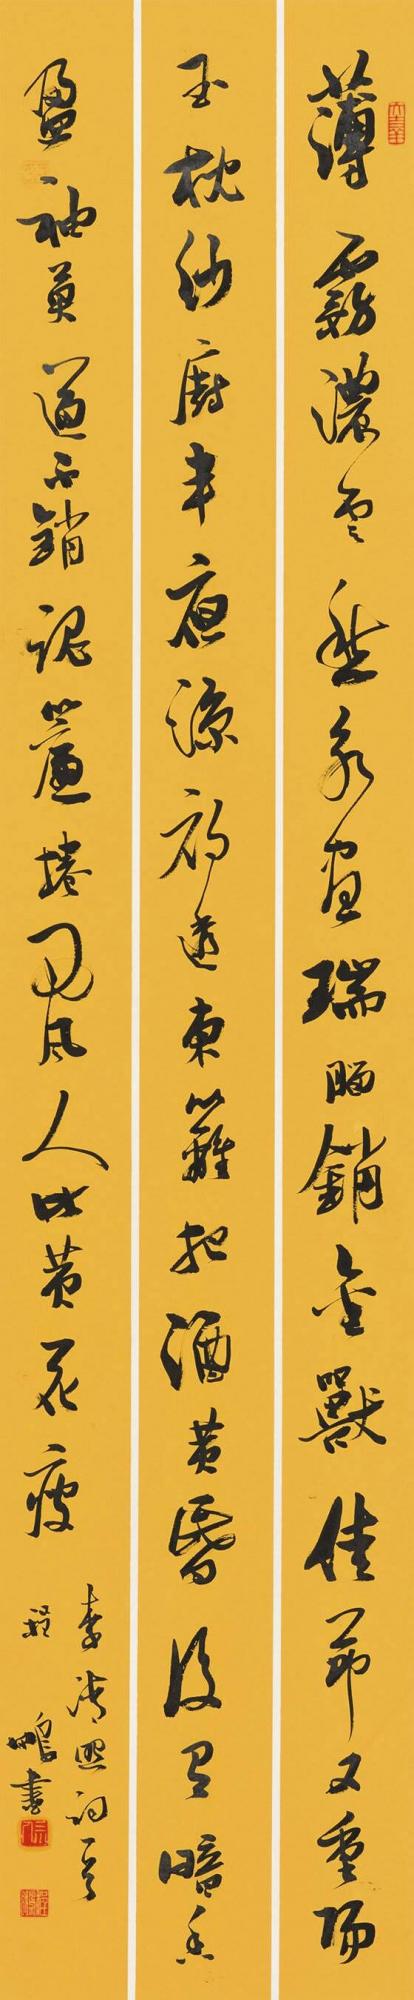 薄霧濃云愁永晝瑞腦銷金獸佳節又重陽
玉枕紗廚半夜涼初透東籬把酒黃昏後有暗香
盈袖莫道不銷魂簾捲西風人比黃花瘦
李清照詞一首
程鵬書